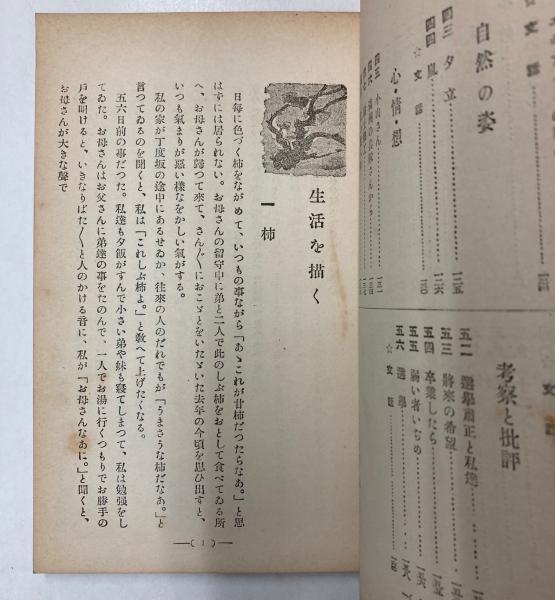 自然の姿
四三 夕立
四四 嵐
☆文話
心・情・想
考察と批評
五二 選擧肅正と私達
五三 將來の希望
五四 卒業したら
五五 弱い者いぢめ
五六 選擧
☆文話
生活を描く
一 柿
日毎に色づく柿をながめて、いつもの事ながら「あゝこれが甘柿だつたらなあ。」と思
はずには居られない。お母さんの留守中に弟と二人で此のしぶ柿をおとして食べてゐる所
へ、お母さんが歸つて來て、さん〴〵におこゞとをいたゞいた去年の今頃を思ひ出すと、
いつも氣まりが惡い樣なをかしい氣がする。
私の家が丁度坂の途中にあるせゐか、往來の人のだれでもが「うまさうな柿だなあ。」と
言つてゐるのを聞くと、私は「これしぶ柿よ。」と敎へて上げたくなる。
五六日前の事だつた。私達も夕飯がすんで小さい弟や妹も寢てしまつて、私は勉强をし
てゐた。お母さんはお父さんに弟達の事をたのんで、一人でお湯に行くつもりでお勝手の
戸を開けると、いきなりばた〳〵と人のかける音に、私が「お母さんなあに。」と聞くと、
お母さんが大きな聲で
(1)